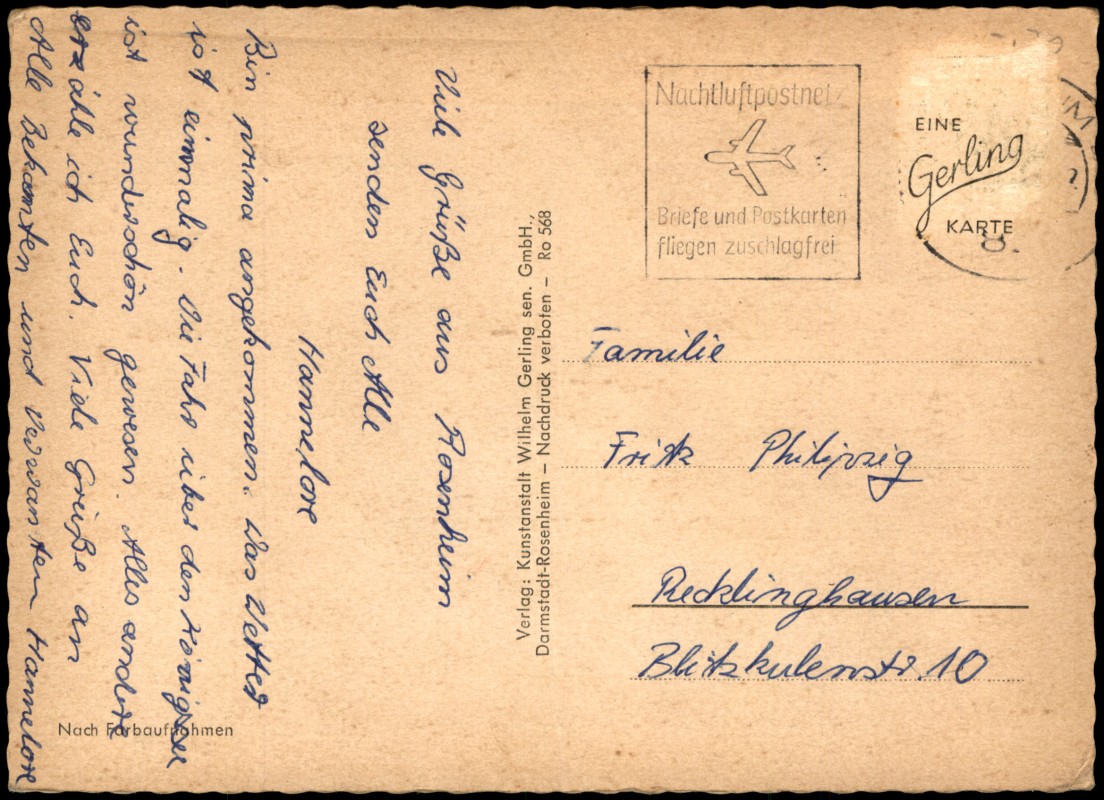 Viele Grüße aus Rosenheim
senden Euch Alle
Hannelore
Bin prima angekommen. Das Wetter
ist einmalig. Die Fahr über den Königsee
ist wunderschön gewesen. Alles andere
erzähle ich Euch. Viele Grüße an
Alle Bekannten und Verwanten Hannelore
Nach Farbaufnahmen
Verlag: Kunstanstalt Wilhelm Gerling sen. GmbH.,
Darmstadt-Rosenheim – Nachdruck verboten – Ro 568
Nachtluftpostnetz
Briefe und Postkarten
fliegen zuschlagfrei
EINE
Gerling
KARTE
Familie
Fritz Philipzig
Recklinghausen
Blitzkulenstr. 10